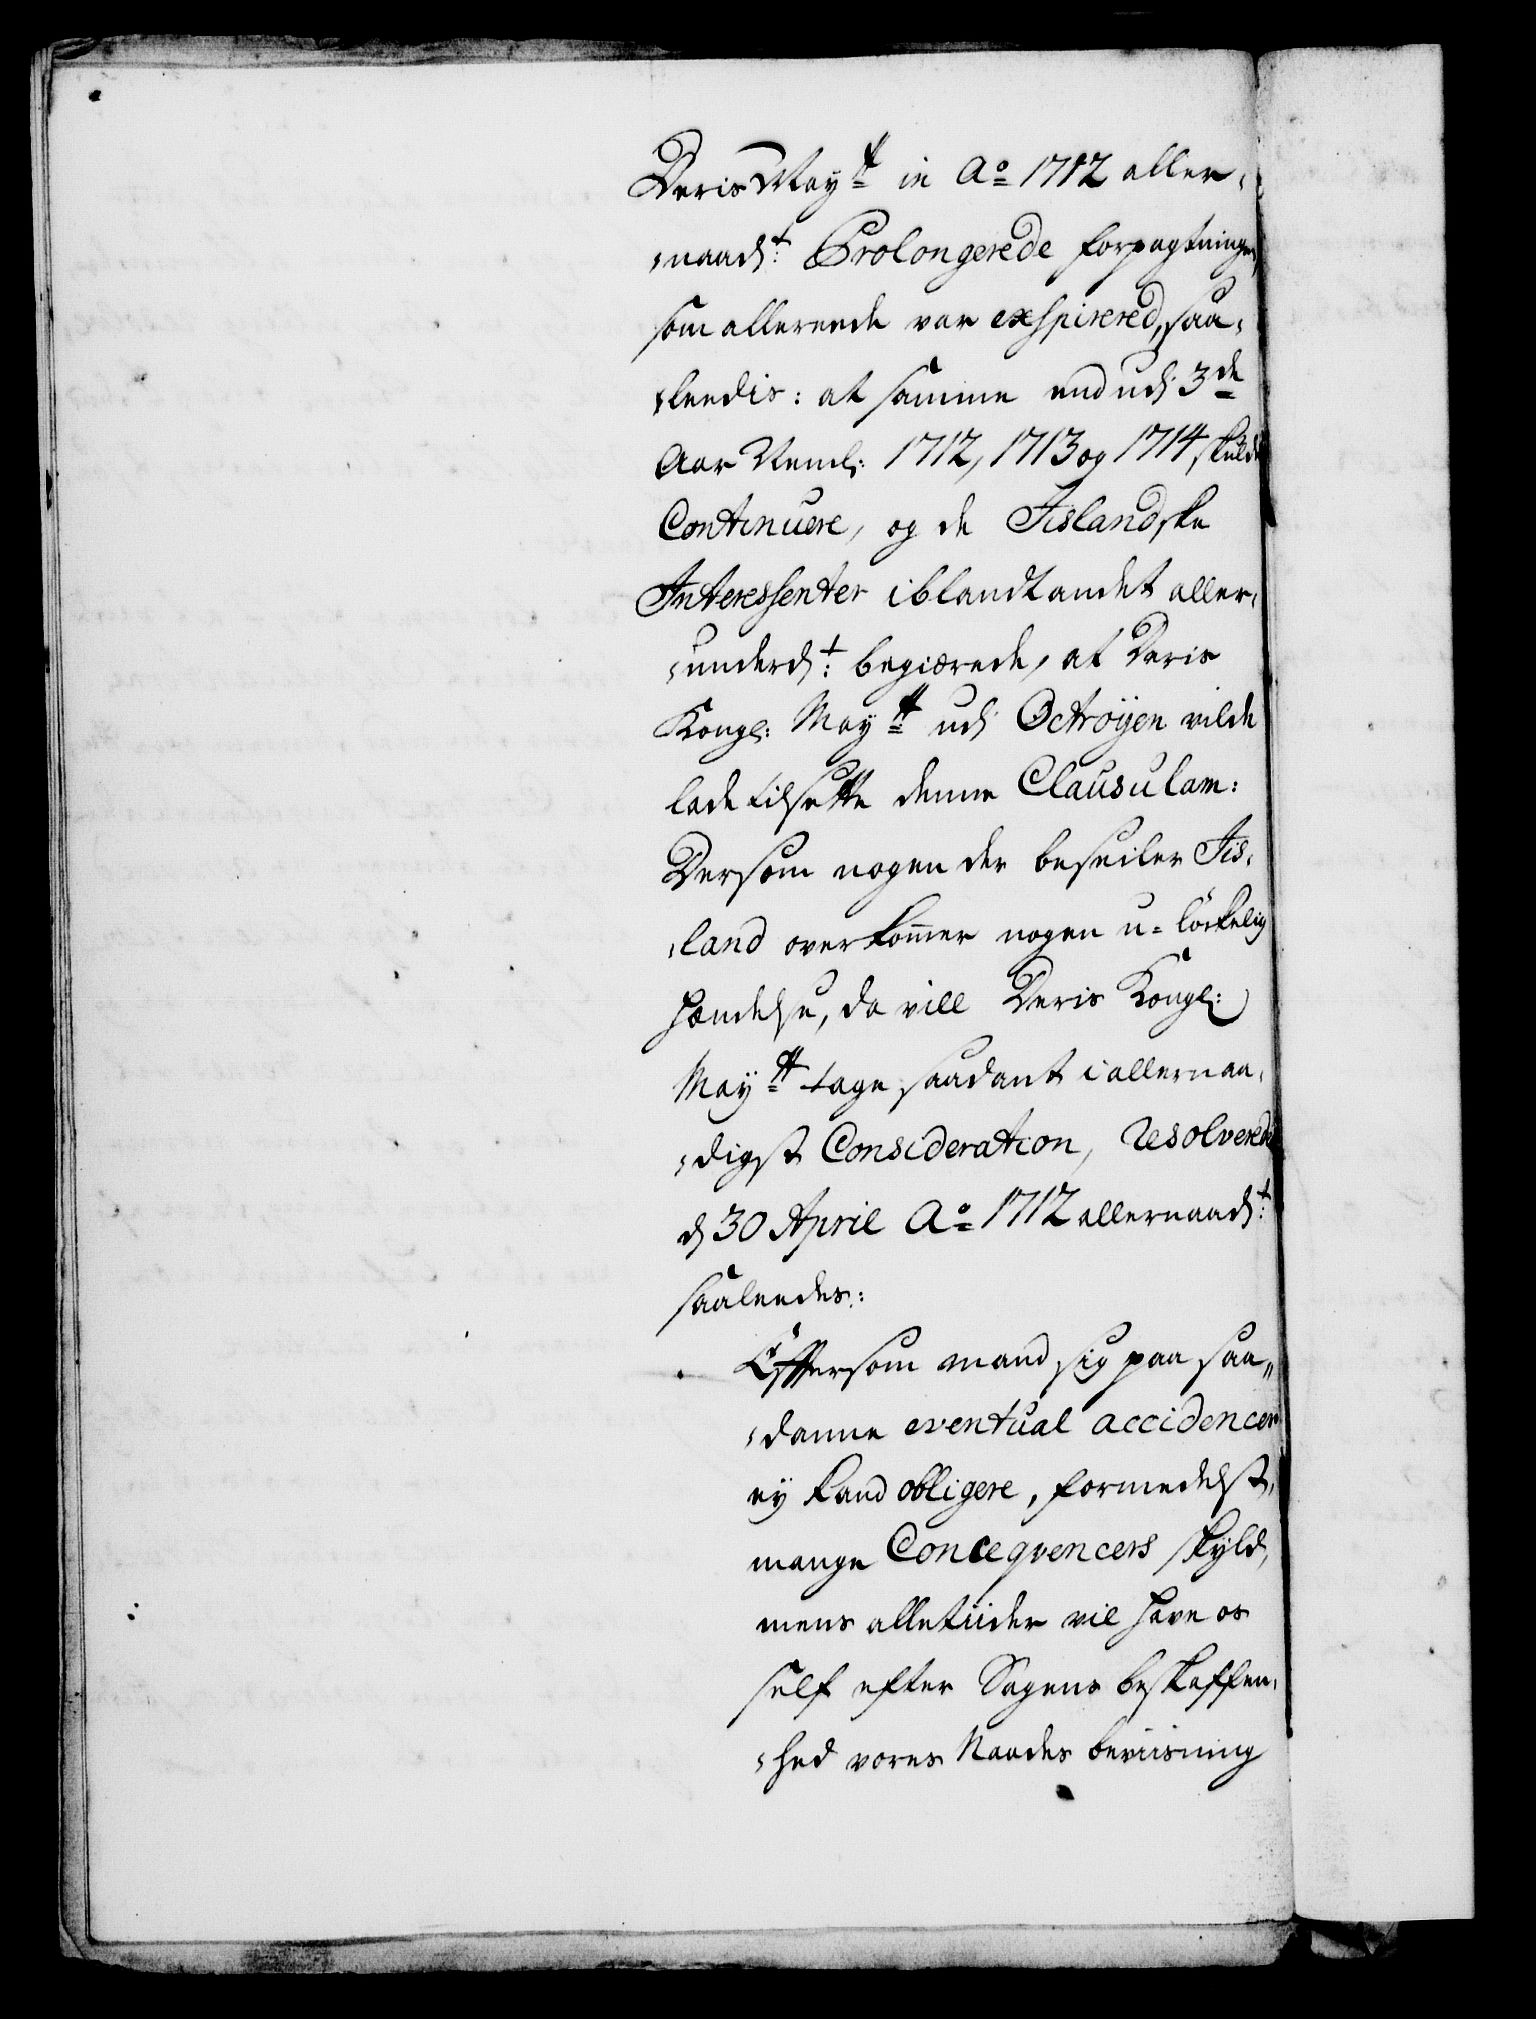 Deris May.tt in Ao 1712 aller,
,naads.t Prolongerede forpagtningen
som allereede var exspirered, saa,
,leedis: at samme end udi 3de
Aar Neml: 1712, 1713 og 1714 skulde
Continuere, og de Jislandske
Interessenter iblandt andet aller,
,underd.t: begiærede, at Deris
Kongl: May.tt udi Octroyen vilde
lade tilsette denne Clausulam:
Dersom nogen der beseiler Jis,
,land overkom̅er nogen u-lökkelig
hændelse, da vill Deris Kongl:
May.tt tage saadant i allernaa,
,digst Consideration, Resolverede
d 30 April Ao 1712 allernaads.t:
saaleedes:
Efftersom mand sig paa saa,,
,danne eventual accidencer
ey kand obligere, formedelst,
mange Conceqvencers skyld,
mens alletiider vil have os
self efter Sagens beskaffen,
,hed vores Naades beviisning